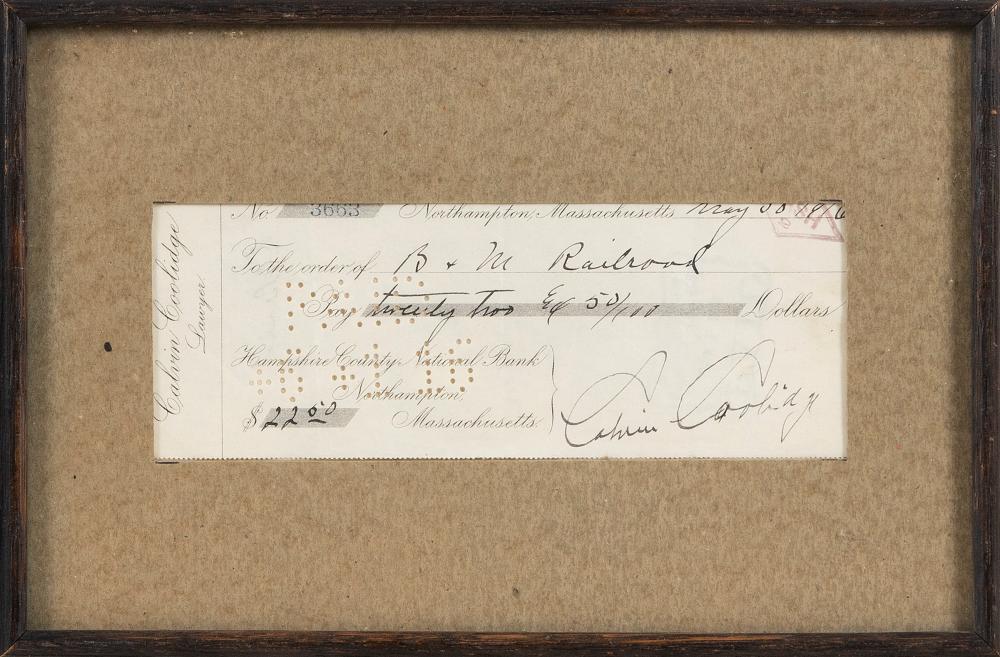 Calvin Coolidge
Lawyer
No 3663 Northampton, Massachusetts May 30
To the order of B & M Railroad
Pay twenty two & 50/100 Dollars
Hampshire County National Bank
Northampton,
Massachusetts.
$ 22 50
Calvin Coolidge